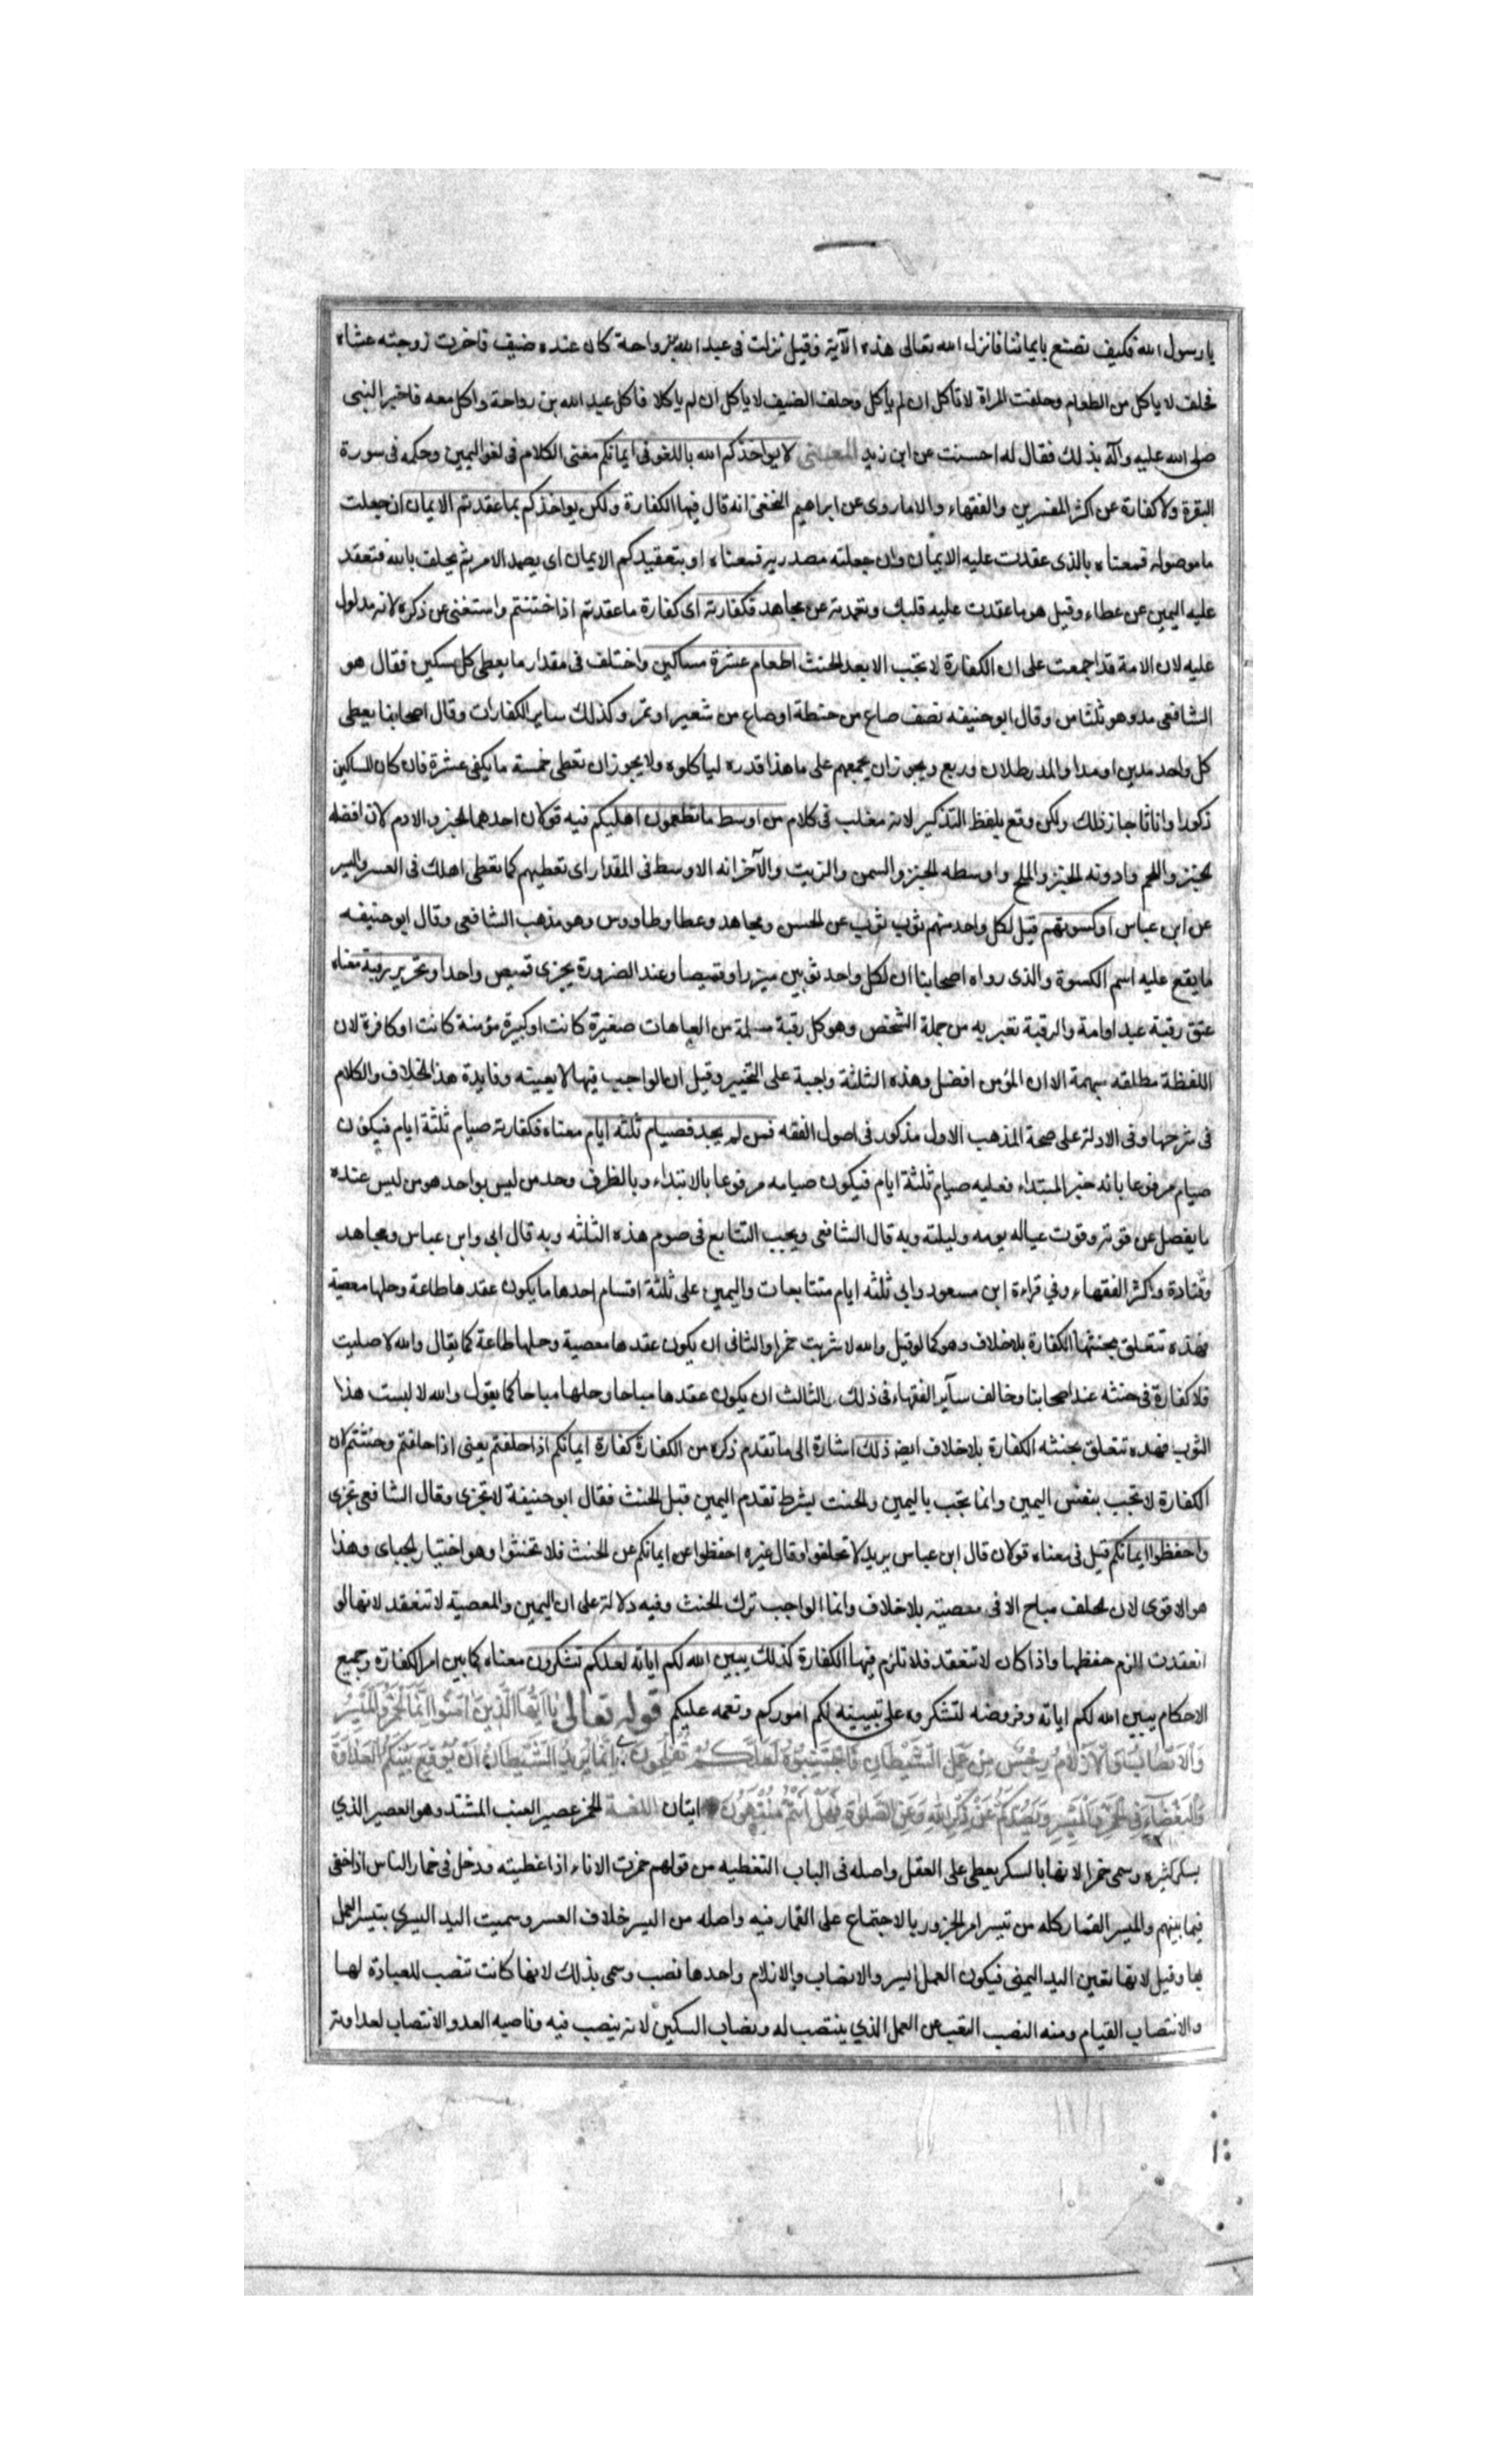 يا رسول الله فكيف نصنع بايماننا فانزل الله تعالى هذه الآية وقيل نزلت فى عبد الله بن رواحة كان عنده ضيف فاخرت زوجته عشاه
فحلف لا ياكل من الطعام وحلفت المراة لا تاكل ان لم ياكل وحلف الضيف لا ياكل ان لم ياكلا فاكل عبد الله بن رواحة واكل معه فاخبر النبى
صلى الله عليه وآله بذلك فقال له احسنت عن ابن زيد المعنى لا يواخذكم الله باللغو فى ايمانكم مضى الكلام فى لغو اليمين وحكمه فى سورة
البقرة ولا كفارة عن اكثر المفسرين والفقهاء والا ما روى عن ابراهيم النخعى انه قال فيها الكفارة ولكن يواخذكم بما عقدتم الايمان ان جعلت
ما موصوله فمعناه بالذى عقدت عليه الايمان وان جعلته مصدرية فمعناه او بتعقيدكم الايمان اى يصمد الامر ثم يحلف بالله فتعقد
عليه اليمين عن عطاء وقيل هو ما عقدت عليه قلبك وتعمدته عن مجاهد فكفارته اى كفارة ما عقدتم اذا حنثتم واستغنى عن ذكره لانه مدلول
عليه لان الامة قد اجمعت على ان الكفارة لا تجب الا بعد الحنث اطعام عشرة مساكين واختلف فى مقدار ما يعطى كل مسكين فقال هو
الشافعى مد وهو ثلثا من وقال ابو حنيفه نصف صاع من حنطة او صاع من شعير او تمر وكذلك ساير الكفارات وقال اصحابنا يعطى
كل واحد مدين او مدا والمد رطلان وربع ويجوز ان يجمعهم على ما هذا قدره لياكلوه ولا يجوز ان تعطى خمسة ما يكفى عشرة فان كان المساكين
ذكورا واناثا جاز ذلك ولكن وقع بلفظ التذكير لانه مغلب فى كلام من اوسط ما تطعمون اهليكم فيه قولان احدهما الخبز والادم لان افضله
الخبز واللحم وادونه الخبز والملح واوسطه الخبز والسمن والزيت والآخر انه الاوسط فى المقدار اى تعطيهم كما تعطى اهلك فى العسر واليسر
عن ابن عباس او كسوتهم قيل لكل واحد منهم ثوب ثوب عن الحسن ومجاهد وعطا وطاووس وهو مذهب الشافعى وقال ابو حنيفه
ما يقع عليه اسم الكسوة والذى رواه اصحابنا ان لكل واحد ثوبين ميزرا وقميصا وعند الضرورة يجزى قميص واحد او تحرير رقبة معناه
عتق رقبة عبد او امة والرقبة تعبر به من جملة الشخص وهو كل رقبة سليمة من العاهات صغيرة كانت او كبيرة مؤمنة كانت او كافرة لان
اللفظة مطلقه مبهمة الا ان المؤمن افضل وهذه الثلثة واجبة على التخيير وقيل ان الواجب فيها لا بعينه وفايدة هذا الخلاف والكلام
فى شرحها وفى الادلة على صحة المذهب الاول مذكور فى اصول الفقه فمن لم يجد فصيام ثلثه ايام معناه فكفارته صيام ثلثة ايام فيكون
صيام مرفوعا بانه خبر المبتداء او فعليه صيام ثلثة ايام فيكون صيامه مرفوعا بالابتداء وبالظرف وحد من ليس بواحد هو من ليس عنده
ما يفضل عن قوته وقوت عياله يومه وليلته وبه قال الشافعى ويجب التتابع فى صوم هذه الثلثه وبه قال ابى وابن عباس ومجاهد
وقتادة واكثر الفقهاء وفي قراءة ابن مسعود وابى ثلثه ايام متتابعات واليمين على ثلثة اقسام احدها ما يكون عقدها طاعة وحلها معصية
فهذه تتعلق بحنثها الكفارة بلا خلاف وهو كما لو قيل والله لا شربت خمرا والثانى ان يكون عقدها معصية وحلها طاعة كما يقال والله لا صليت
فلا كفارة فى حنثه عند اصحابنا وخالف ساير الفقهاء فى ذلك والثالث ان يكون عقدها مباحا وحلها مباحا كما يقول والله لا لبست هذا
الثوب فهذه تتعلق بحنثه الكفارة بلا خلاف ايضا ذلك اشارة الى ما تقدم ذكره من الكفارة كفارة ايمانكم اذا حلفتم يعنى اذا حلفتم وحنثتم لان
الكفارة لا تجب بنفس اليمين وانما تجب باليمين والحنث بشرط تقدم اليمين قبل الحنث فقال ابو حنيفة لا تجزى وقال الشافعى تجزى
واحفظوا ايمانكم قيل فى معناه قولان قال ابن عباس يريد لا تحلفوا وقال غيره احفظوا عن ايمانكم عن الحنث فلا تحنثوا وهو اختيار الجبائى وهذا
هو الاقوى لان الحلف مباح الا فى معصية بلا خلاف وانما الواجب ترك الحنث وفيه دلالة على ان اليمين والمعصية لا تنعقد لانها لو
انعقدت الزم حفظها واذا كان لا تنعقد فلا تلزم فيها الكفارة كذلك يبين الله لكم اياته لعلكم تشكرون معناه كما بين امر الكفارة وجميع
الاحكام يبين الله لكم اياته وفروضه لتشكروه على تبيينه لكم اموركم ونعمه عليكم قوله تعالى يَا اَيُّهَا الَّذِينَ آمَنُوا اِنَّمَا الْخَمْرُ وَالْمَيْسِرُ
وَالْاَنْصَابُ وَالْاَزْلَامُ رِجْسٌ مِنْ عَمَلِ الشَّيْطَانِ فَاجْتَنِبُوهُ لَعَلَّكُمْ تُفْلِحُونَ اِنَّمَا يُرِيدُ الشَّيْطَانُ اَنْ يُوقِعَ بَيْنَكُمُ الْعَدَاوَةَ
وَالْبَغْضَاءَ فِي الْخَمْرِ وَالْمَيْسِرِ وَيَصُدَّكُمْ عَنْ ذِكْرِ اللهِ وَعَنِ الصَّلوةِ فَهَلْ اَنْتُمْ مُنْتَهُونَ ايتان اللغة الخمر عصير العنب المشتد وهو العصير الذي
يسكر كثيره وسمى خمرا لانها بالسكر يغطى على العقل واصله فى الباب التغطيه من قولهم خمرت الاناء اذا غطيته ودخل فى خمار الناس اذا خفى
فيما بينهم والميسر القمار كله من تيسر امر الجزور بالاجتماع على القمار فيه واصله من اليسر خلاف العسر وسميت اليد اليسرى بتيسر العمل
بها وقيل لانها تعين اليد اليمنى فيكون العمل ايسر والانصاب والازلام واحدها نصب وسمى بذلك لانها كانت تنصب للعبادة لها
والانتصاب القيام ومنه النصب التعب عن العمل الذي ينتصب له ونصاب السكين لانه ينصب فيه ومناصبه العدو الانتصاب لعداوته